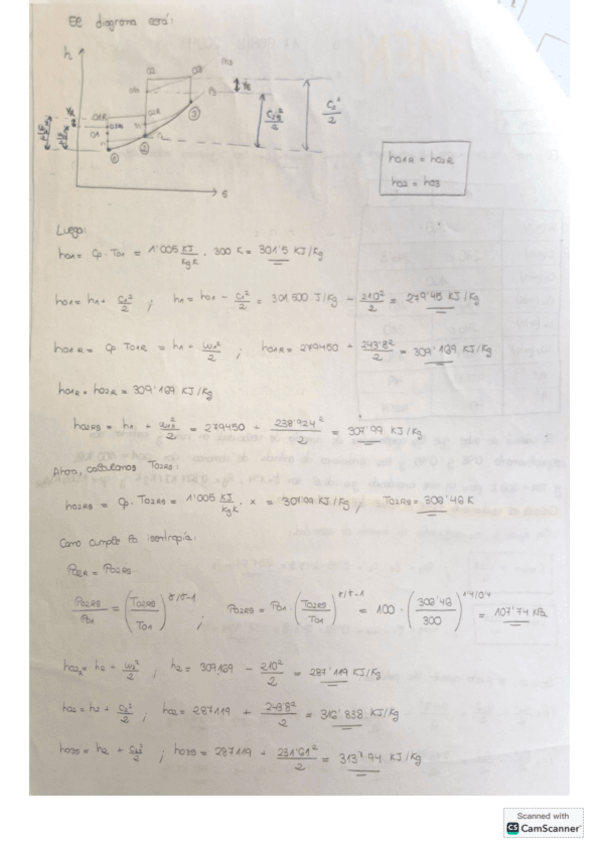 El diagrama será:
h
02
03
01R
02R
01
③
②
①
s
C₂²/2
h01R = h02R
h02 = h03
Luego:
h01 = Cp · T01 = 1'005 KJ/Kg K · 300 K = 301'5 KJ/Kg
h01 = h1 + C1²/2 ; h1 = h01 - C1²/2 = 301.500 J/Kg - 210²/2 = 279'45 KJ/Kg
h01R = Cp T01R = h1 + w1²/2 ; h01R = 279450 + 243'8²/2 = 309'169 KJ/Kg
h01R = h02R = 309'169 KJ/Kg
= 279450 + 238'924²/2 = 307'99 KJ/Kg
Ahora, calculamos T02RS:
h02RS = Cp · T02RS = 1'005 KJ/Kg K · x = 307'99 KJ/Kg ; T02RS = 306'46 K
Como cumple la isentropía:
P02R = P02RS
P02RS/P01 = (T02RS/T01)^γ/γ-1 ; P02RS = P01 · (T02RS/T01)^γ/γ-1 = 100 · (306'46/300)^1'4/0'4 = 107'74 KPa
h02R = h2 + w2²/2 ; h2 = 309'169 - 210²/2 = 287'119 KJ/Kg
h02 = h2 + C2²/2 ; h02 = 287119 + = 312'838 KJ/Kg
= 287119 + 231'61²/2 = 313'94 KJ/Kg
Scanned with
CS CamScanner